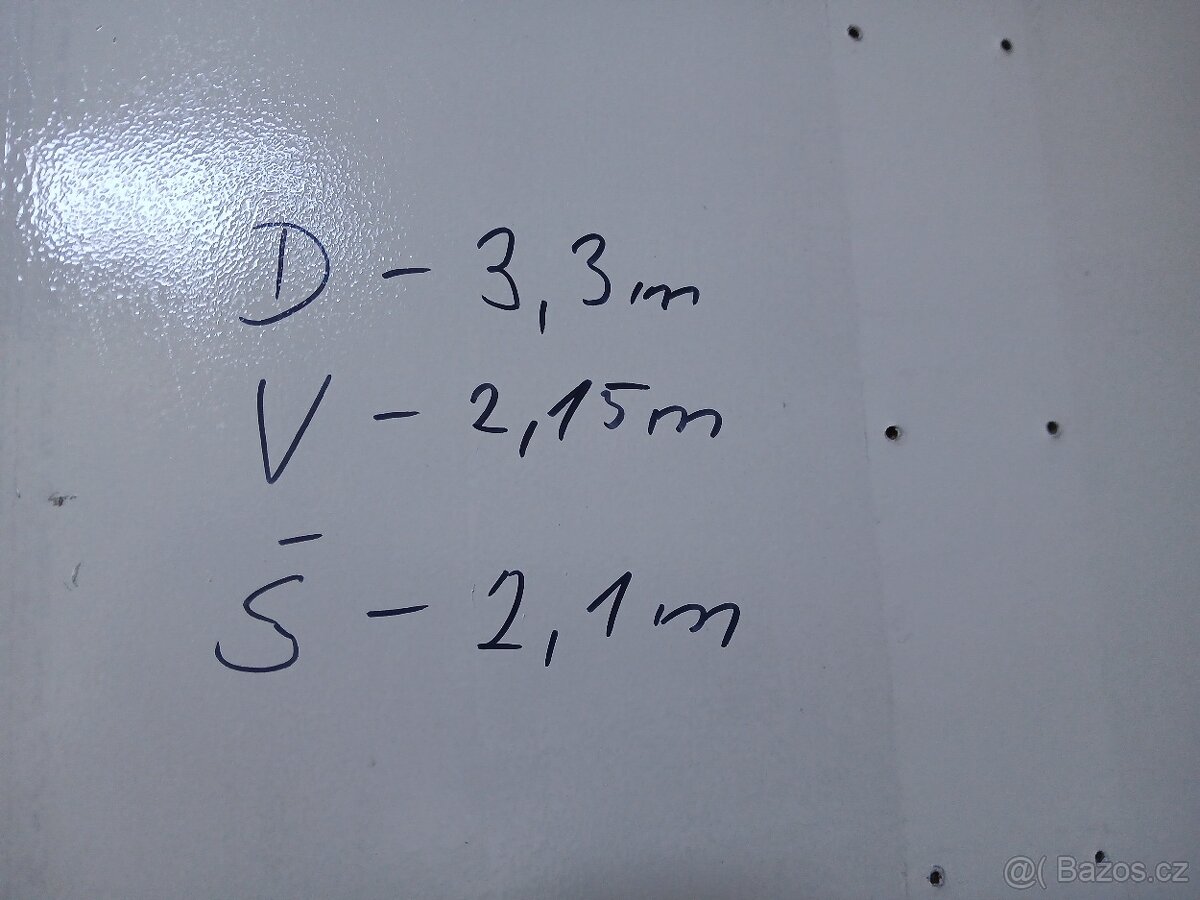 D - 3,3m
V - 2,15m
Š - 2,1m
@( Bazos.cz